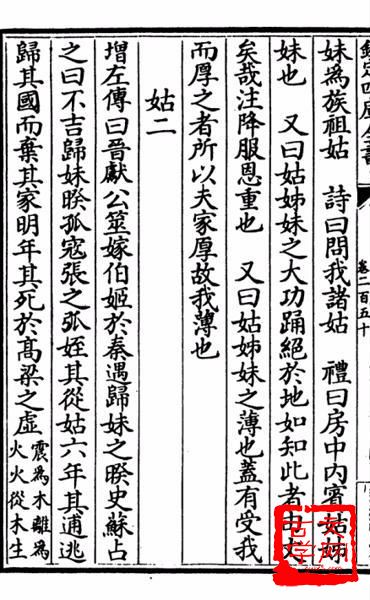 欽定四庫全書
卷二百五十
妹為族祖姑　詩曰問我諸姑　禮曰房中内賓姑姊
妹也　又曰姑姊妹之大功踊絕於地如知此者由文
矣哉注降服恩重也　又曰姑姊妹之薄也蓋有受我
而厚之者所以夫家厚故我薄也
姑二
增左傳曰晉獻公筮嫁伯姬於秦遇歸妹之睽史蘇占
之曰不吉歸妹睽孤寇張之弧姪其從姑六年其逋逃
歸其國而棄其家明年其死於髙梁之虛
震為木離為
火火從木生